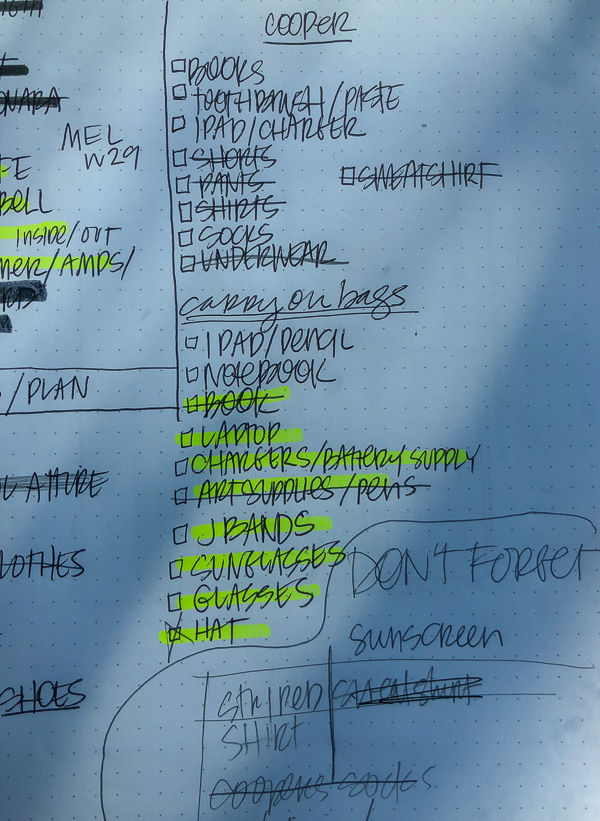 COOPER
BOOKS
TOOTHBRUSH/PASTE
IPAD/CHARGER
SHORTS
PANTS
SWEATSHIRT
SHIRTS
SOCKS
UNDERWEAR
MEL
W29
BELL
INSIDE/OUT
/AMPS/
/PLAN
SHOES
carry on bags
IPAD/PENCIL
NOTEBOOK
BOOK
LAPTOP
CHARGERS/BATTERY SUPPLY
ART SUPPLIES/PENS
J BANDS
SUNGLASSES
GLASSES
HAT
DON'T FORGET
SUNSCREEN
STRIPED
SHIRT
SWEATSHIRT
COOPERS SOCKS